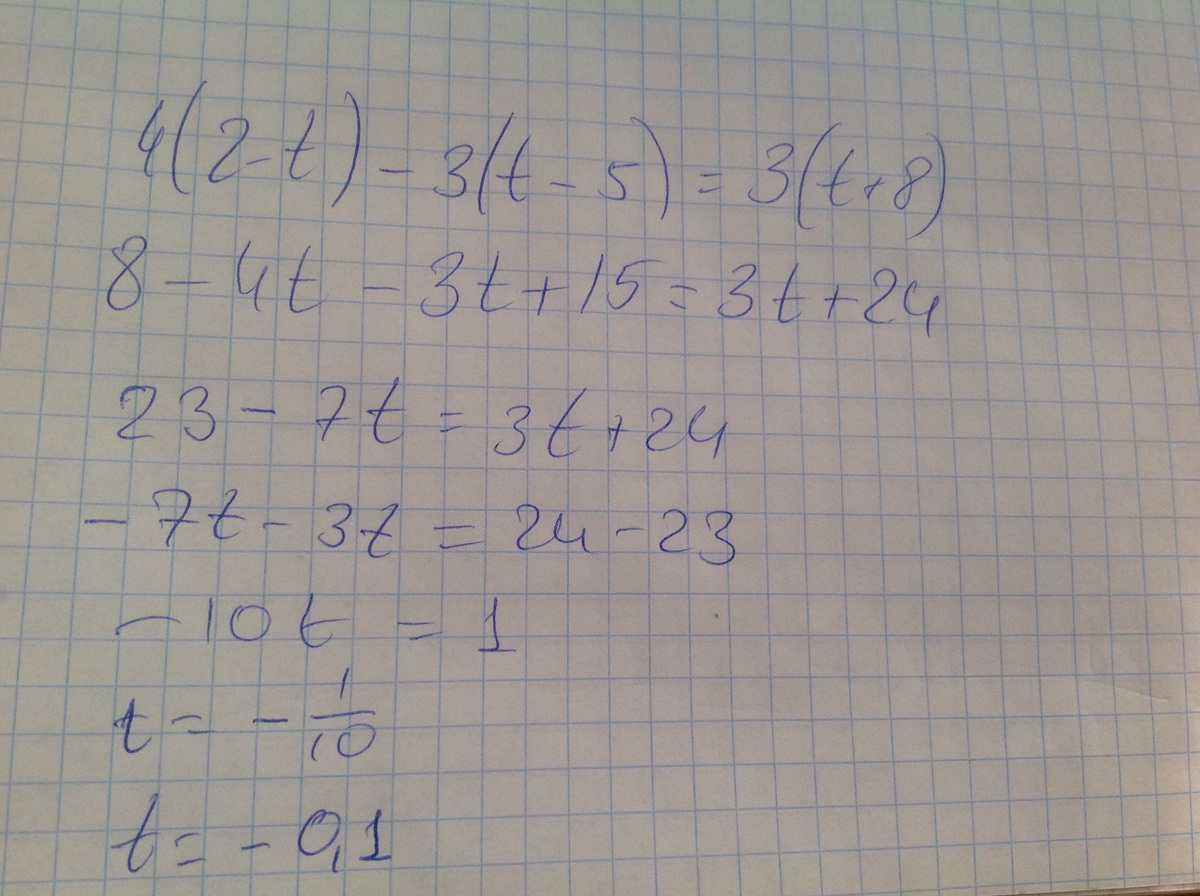 4(2-t)-3(t-5)=3(t+8)
8-4t-3t+15=3t+24
23-7t=3t+24
-7t-3t=24-23
-10t=1
t=-1/10
t=-0,1